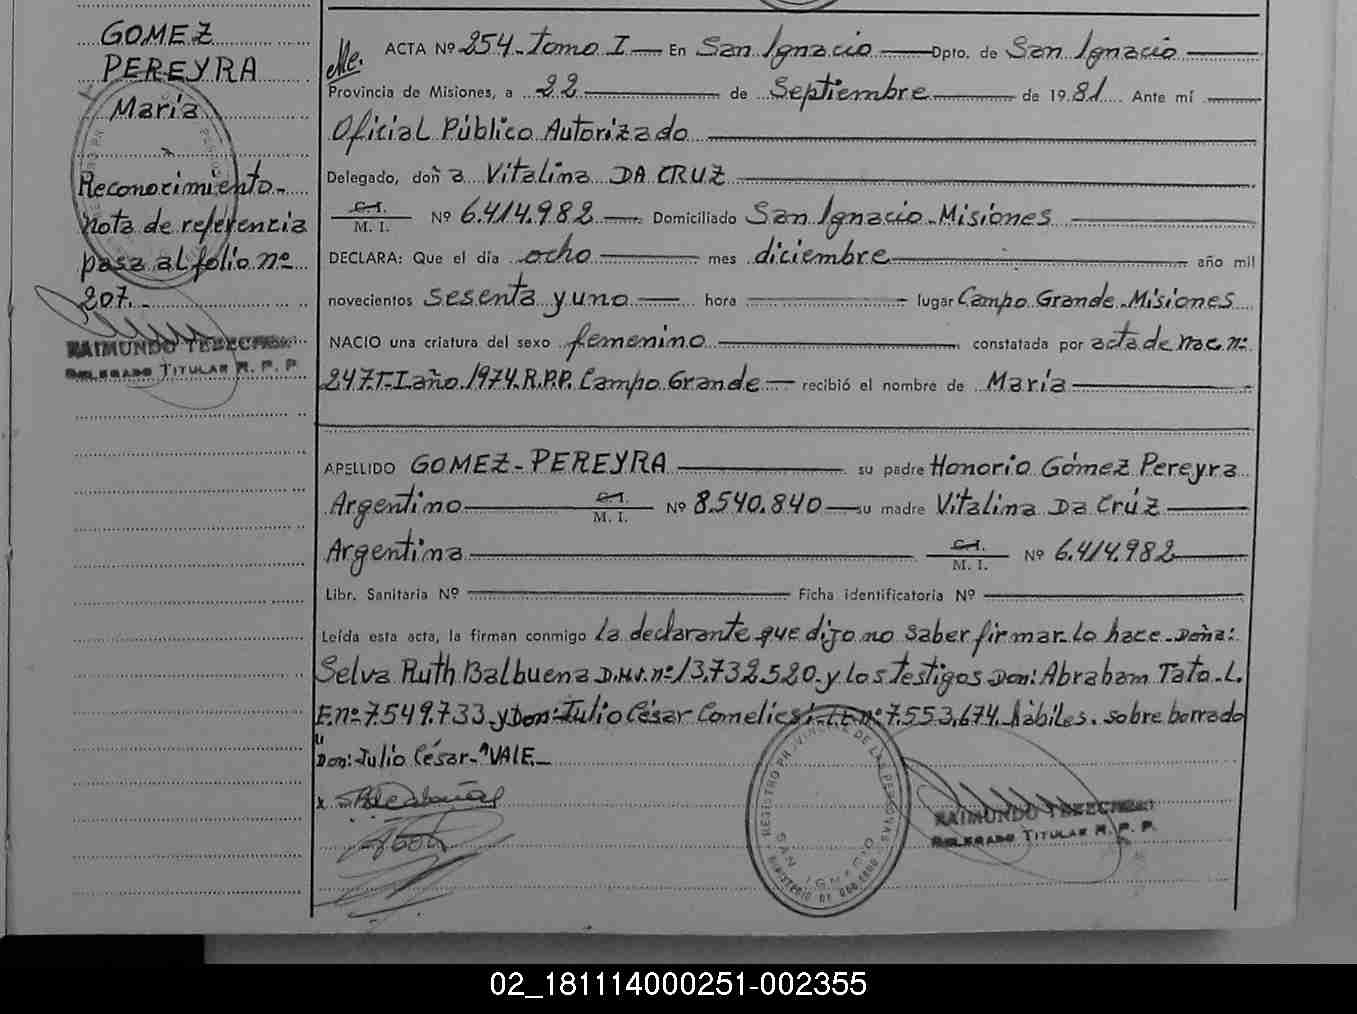 GOMEZ
PEREYRA
María
Reconocimiento-
nota de referencia
pasa al folio nº
207.-
RAIMUNDO
DELEGADO TITULAR R. P. P.
ACTA Nº 254- Tomo I — En San Ignacio — Dpto. de San Ignacio
Provincia de Misiones, a 22 de Septiembre de 1981 Ante mí
Oficial Público Autorizado
Delegado, doña Vitalina DA CRUZ
C.I.
M. I. Nº 6.414.982 Domiciliado San Ignacio-Misiones
DECLARA: Que el día ocho mes diciembre año mil
novecientos sesenta y uno hora lugar Campo Grande-Misiones
NACIO una criatura del sexo femenino constatada por acta de nac. nº
247.T-I.año.1974.R.P.P. Campo Grande recibió el nombre de María
APELLIDO GOMEZ-PEREYRA su padre Honorio Gómez Pereyra
Argentino C.I. M. I. Nº 8.540.840 su madre Vitalina Da Crúz
Argentina C.I. M. I. Nº 6.414.982
Libr. Sanitaria Nº Ficha identificatoria Nº
Leída esta acta, la firman conmigo la declarante que dijo no saber firmar lo hace-Doña:
Selva Ruth Balbuena D.N.I. nº 13.732.520.y los testigos Don: Abraham Tato-L.
E.nº 7.549.733 y Don: Julio César L.E nº 7.553.674. hàbiles. sobre borrado
Don: Julio César-"VALE-
x
REGISTRO PROVINCIAL DE LAS PERSONAS
SAN IGNACIO
MINISTERIO DE GOBIERNO
RAIMUNDO
DELEGADO TITULAR R. P. P.
02_181114000251-002355